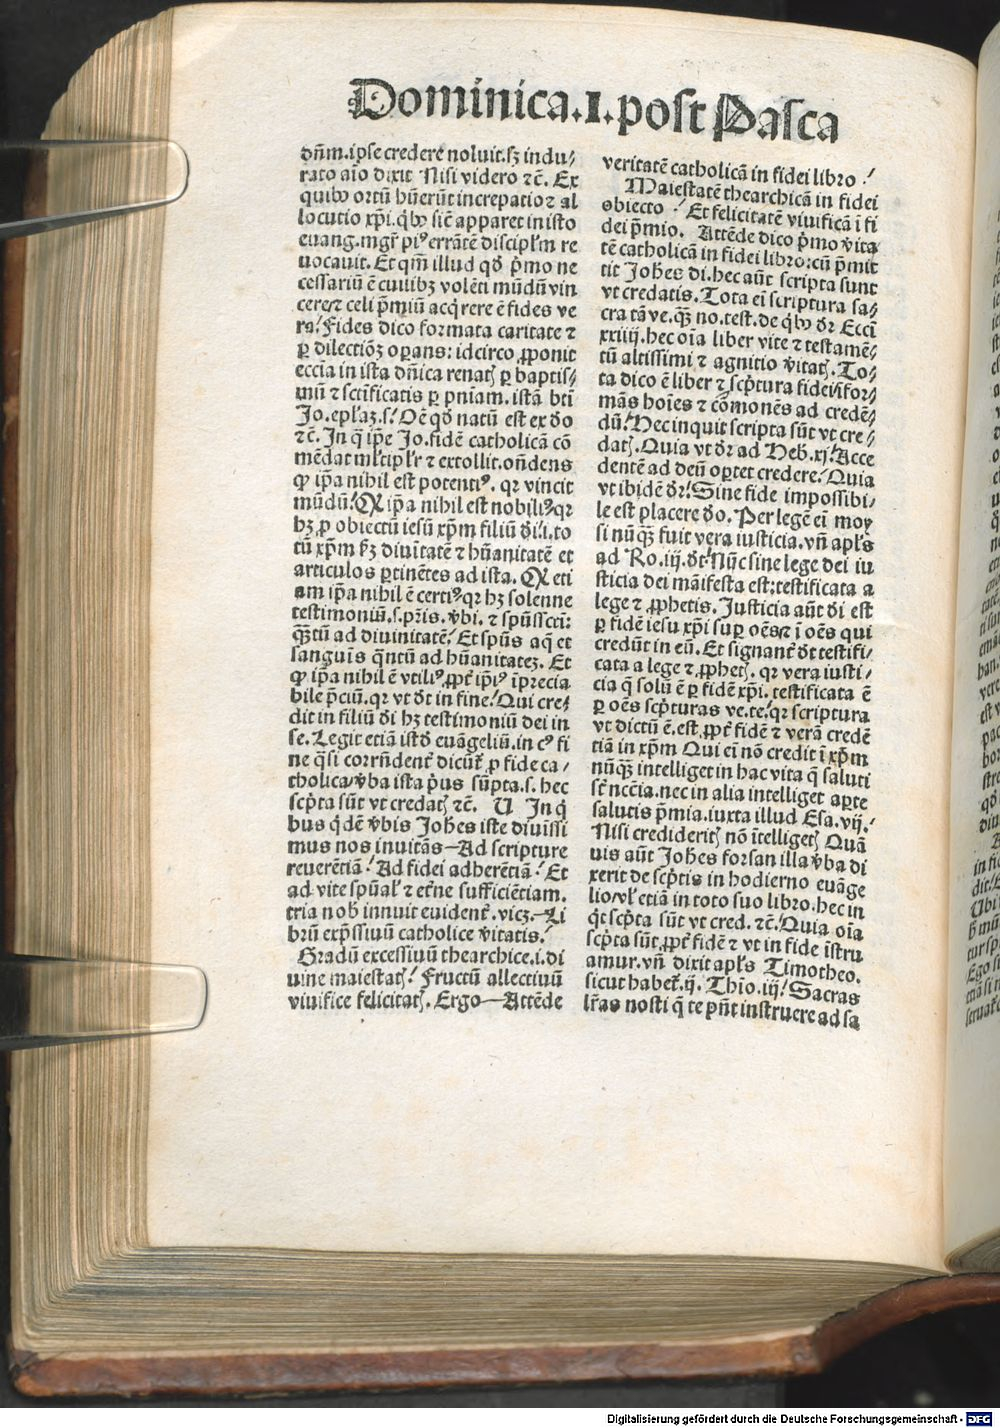 Dominica.I.post Pasca
dn̄m.ipse credere noluit.sꝫ indu/
rato aīo dixit Nisi videro ⁊c̄. Ex
quibꝰ ortū hūerūt increpatio ⁊ al
locutio xp̄i.q̇bꝰ sic̄ apparet in isto
euang.mgr̄ piꝰ errātē discipl'm re
uocauit. Et qm̄ illud qd̓ p̄mo ne
cessariū ē cuilibꝫ volēti mūdū vin
cere ⁊ celi p̄miū acq̇rere ē fides ve
ra! Fides dico formata caritate ⁊
ꝑ dilectiōꝫ oꝑans: idcirco ꝓponit
eccīa in ista dn̄ica renatꝭ ꝑ baptis/
mū ⁊ sctīficatis ꝑ pn̄iam. istā bt̄i
Jo.ep̄laꝫ.s.! Oē qd̓ natū est ex d̓o
⁊c̄. In q̄ ip̄e Jo.fidē catholicā cō
mēdat ml'tipl'r ⁊ extollit.on̄dens
ꝙ ip̄a nihil est potentiꝰ. qꝛ vincit
mūdū! Q ip̄a nihil est nobiliꝰ.qꝛ
hꝫ ꝓ obiectū iesū xp̄m filiū d̓i.i.to
tū xp̄m ẜꝫ diuītatē ⁊ hūanitatē et
articulos ꝑtinētes ad ista. Q eti
am ip̄a nihil ē certiꝰ.qꝛ hꝫ solenne
testimoniū.s.pr̄is.v̓bi. ⁊ sp̄ūsscti:
qꝫtū ad diuinitatē! Et sp̄ūs aq̄ et
sanguīs q̄ntū ad hūanitateꝫ. Et
ꝙ ip̄a nihil ē vtiliꝰ.ꝓpt̄ ip̄iꝰ īprecia
bile p̄ciū.qꝛ vt d̓t in fine! Qui cre/
dit in filiū d̓i hꝫ testimoniū dei in
se. Legit̄ etiā istd̓ euāgeliū.in cꝰ fi
ne q̄si corrn̄dent̄ dicūt̄ ꝓ fide ca/
tholica/v̓ba ista p̓us sūpta.s. hec
scp̄ta sūt vt credatꝭ ⁊c̄. U In q̇
bus q̇dē v̓bis Joh̄es iste diuissi
mus nos inuitās—Ad scripture
reuerētiā! Ad fidei adherētiā! Et
ad vite sp̄ual' ⁊ et̄ne sufficiētiam.
tria nob̄ innuit euident̄.vicꝫ.—Li
brū exp̄ssiuū catholice v̓itatis!
Gradū excessiuū thearchice.i.di
uine maiestatꝭ! Fructū allectiuū
viuifice felicitatꝭ. Ergo—Attēde
veritatē catholicā in fidei libro!
Maiestatē thearchicā in fidei
obiecto! Et felicitatē viuificā ī fi
dei p̄mio. Attēde dico p̓mo v̓ita
tē catholicā in fidei libro:cū p̄mit
tit̄ Joh̄es di.hec aūt scripta sunt
vt credatis. Tota eī scriptura sa/
cra tā ve.qꝫ no.test.de q̇bꝰ d̓r Eccī
xxiiij.hec oīa liber vite ⁊ testamē/
tū altissimi ⁊ agnitio v̓itatꝭ. To/
ta dico ē liber ⁊ scp̄tura fidei/īfor/
mās hoīes ⁊ cōmonēs ad credē/
dū! Hec inquit scripta sūt vt cre/
datꝭ. Quia vt d̓r ad Heb̄.xj! Acce
dentē ad deū oꝑtet credere. Quia
vt ibidē d̓r! Sine fide impossibi/
le est placere d̓o. Per legē eī moy
si nūqꝫ fuit vera iusticia.vn̄ apl's
ad Ro.iij.d̓t! Nūc sine lege dei iu
sticia dei māifesta est:testificata a
lege ⁊ ꝓphetis. Justicia aūt d̓i est
ꝑ fidē iesu xp̄i suꝑ oēs ⁊ ī oēs qui
credūt in eū. Et signant̄ d̓t testifi/
cata a lege ⁊ ꝓphetꝭ. qꝛ vera iusti/
cia q̄ solū ē ꝑ fidē xp̄i. testificata ē
ꝑ oēs scp̄turas ve.te.qꝛ scriptura
vt dictū ē.est ꝓpt̄ fidē ⁊ verā credē
tiā in xp̄m Qui eī nō credit ī xp̄m
nūqꝫ intelliget in hac vita q̄ saluti
st̄ ncc̄ia.nec in alia intelliget aꝑte
salutis p̄mia.iuxta illud Esa.vij.
Nisi credideritꝭ nō ītelligetꝭ Quā
uis aūt Joh̄es forsan illa v̓ba di
xerit de scp̄tis in hodierno euāge
lio/vl' etiā in toto suo libro.hec in
q̇t scp̄ta sūt vt cred. ⁊c̄. Quia oīa
scp̄ta sūt ꝓpt̄ fidē ⁊ vt in fide īstru
amur.vn̄ dixit apl's Timotheo.
sicut habet̄.ij. Thīo.iij! Sacras
lr̄as nosti q̄ te pn̄t instruere ad sa
Digitalisierung gefördert durch die Deutsche Forschungsgemeinschaft - DFG